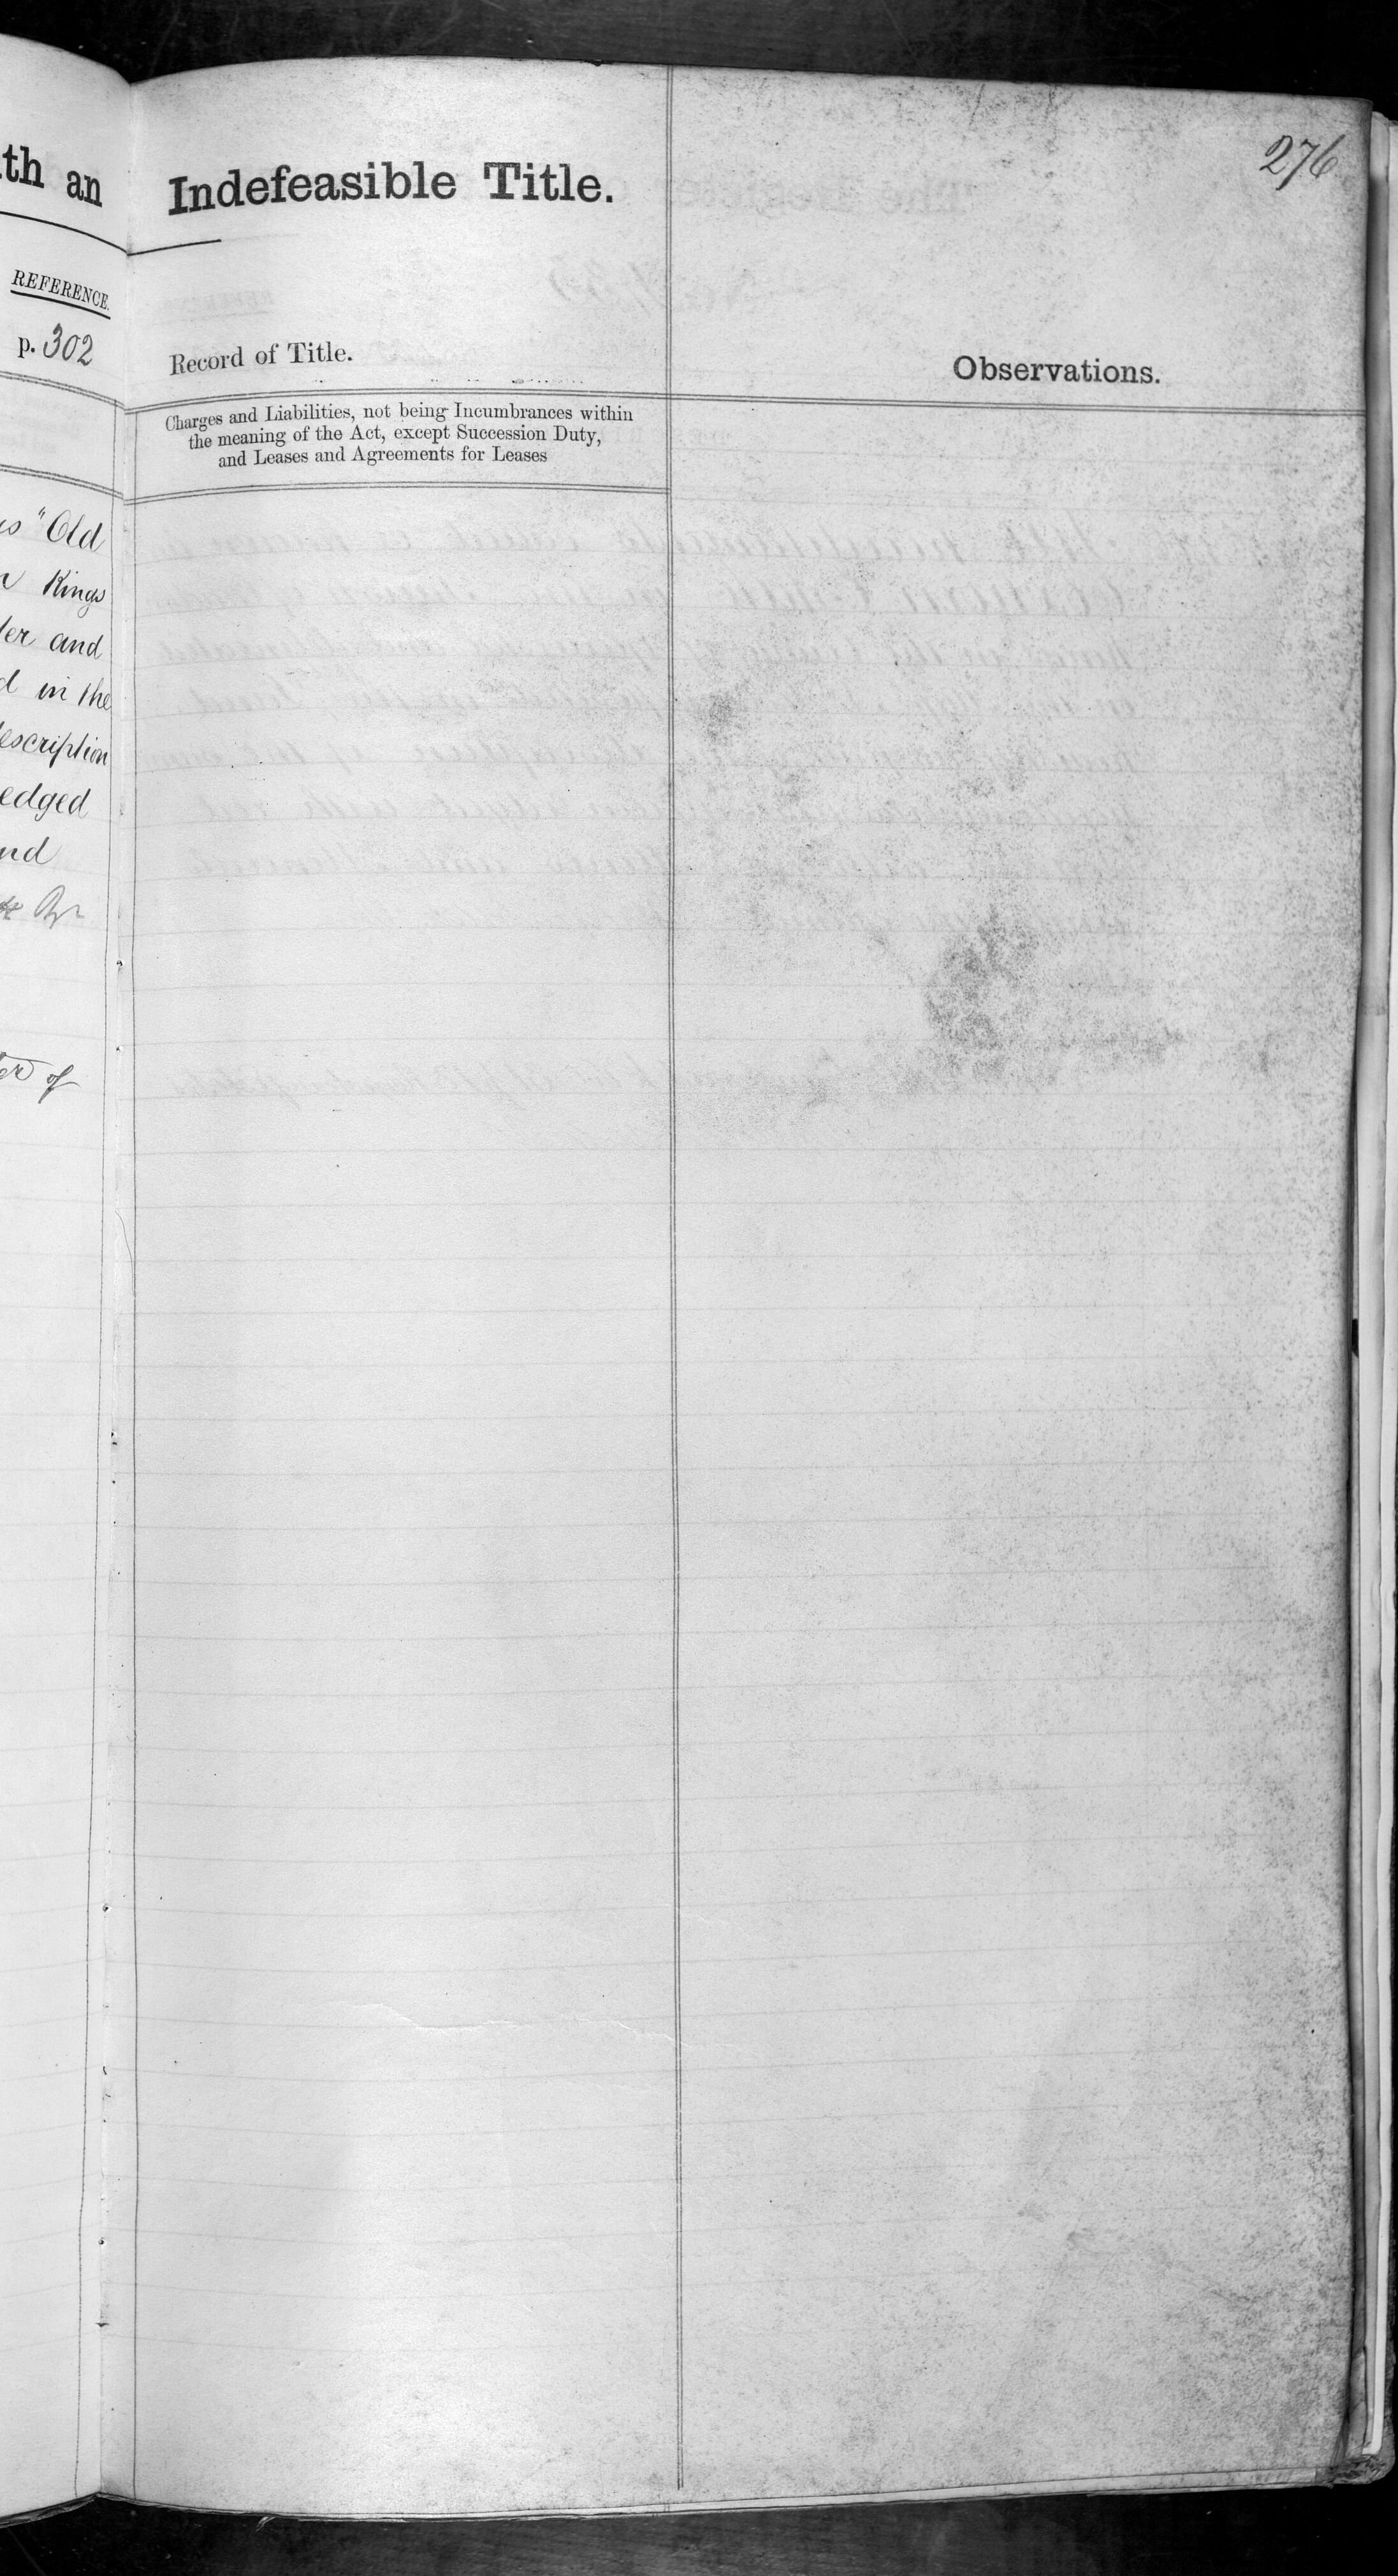 276
th an Indefeasible Title.
REFERENCE.
p. 302
Record of Title.
Observations.
Charges and Liabilities, not being Incumbrances within
the meaning of the Act, except Succession Duty,
and Leases and Agreements for Leases
"Old
Kings
and
in the
escription
edged
nd
of